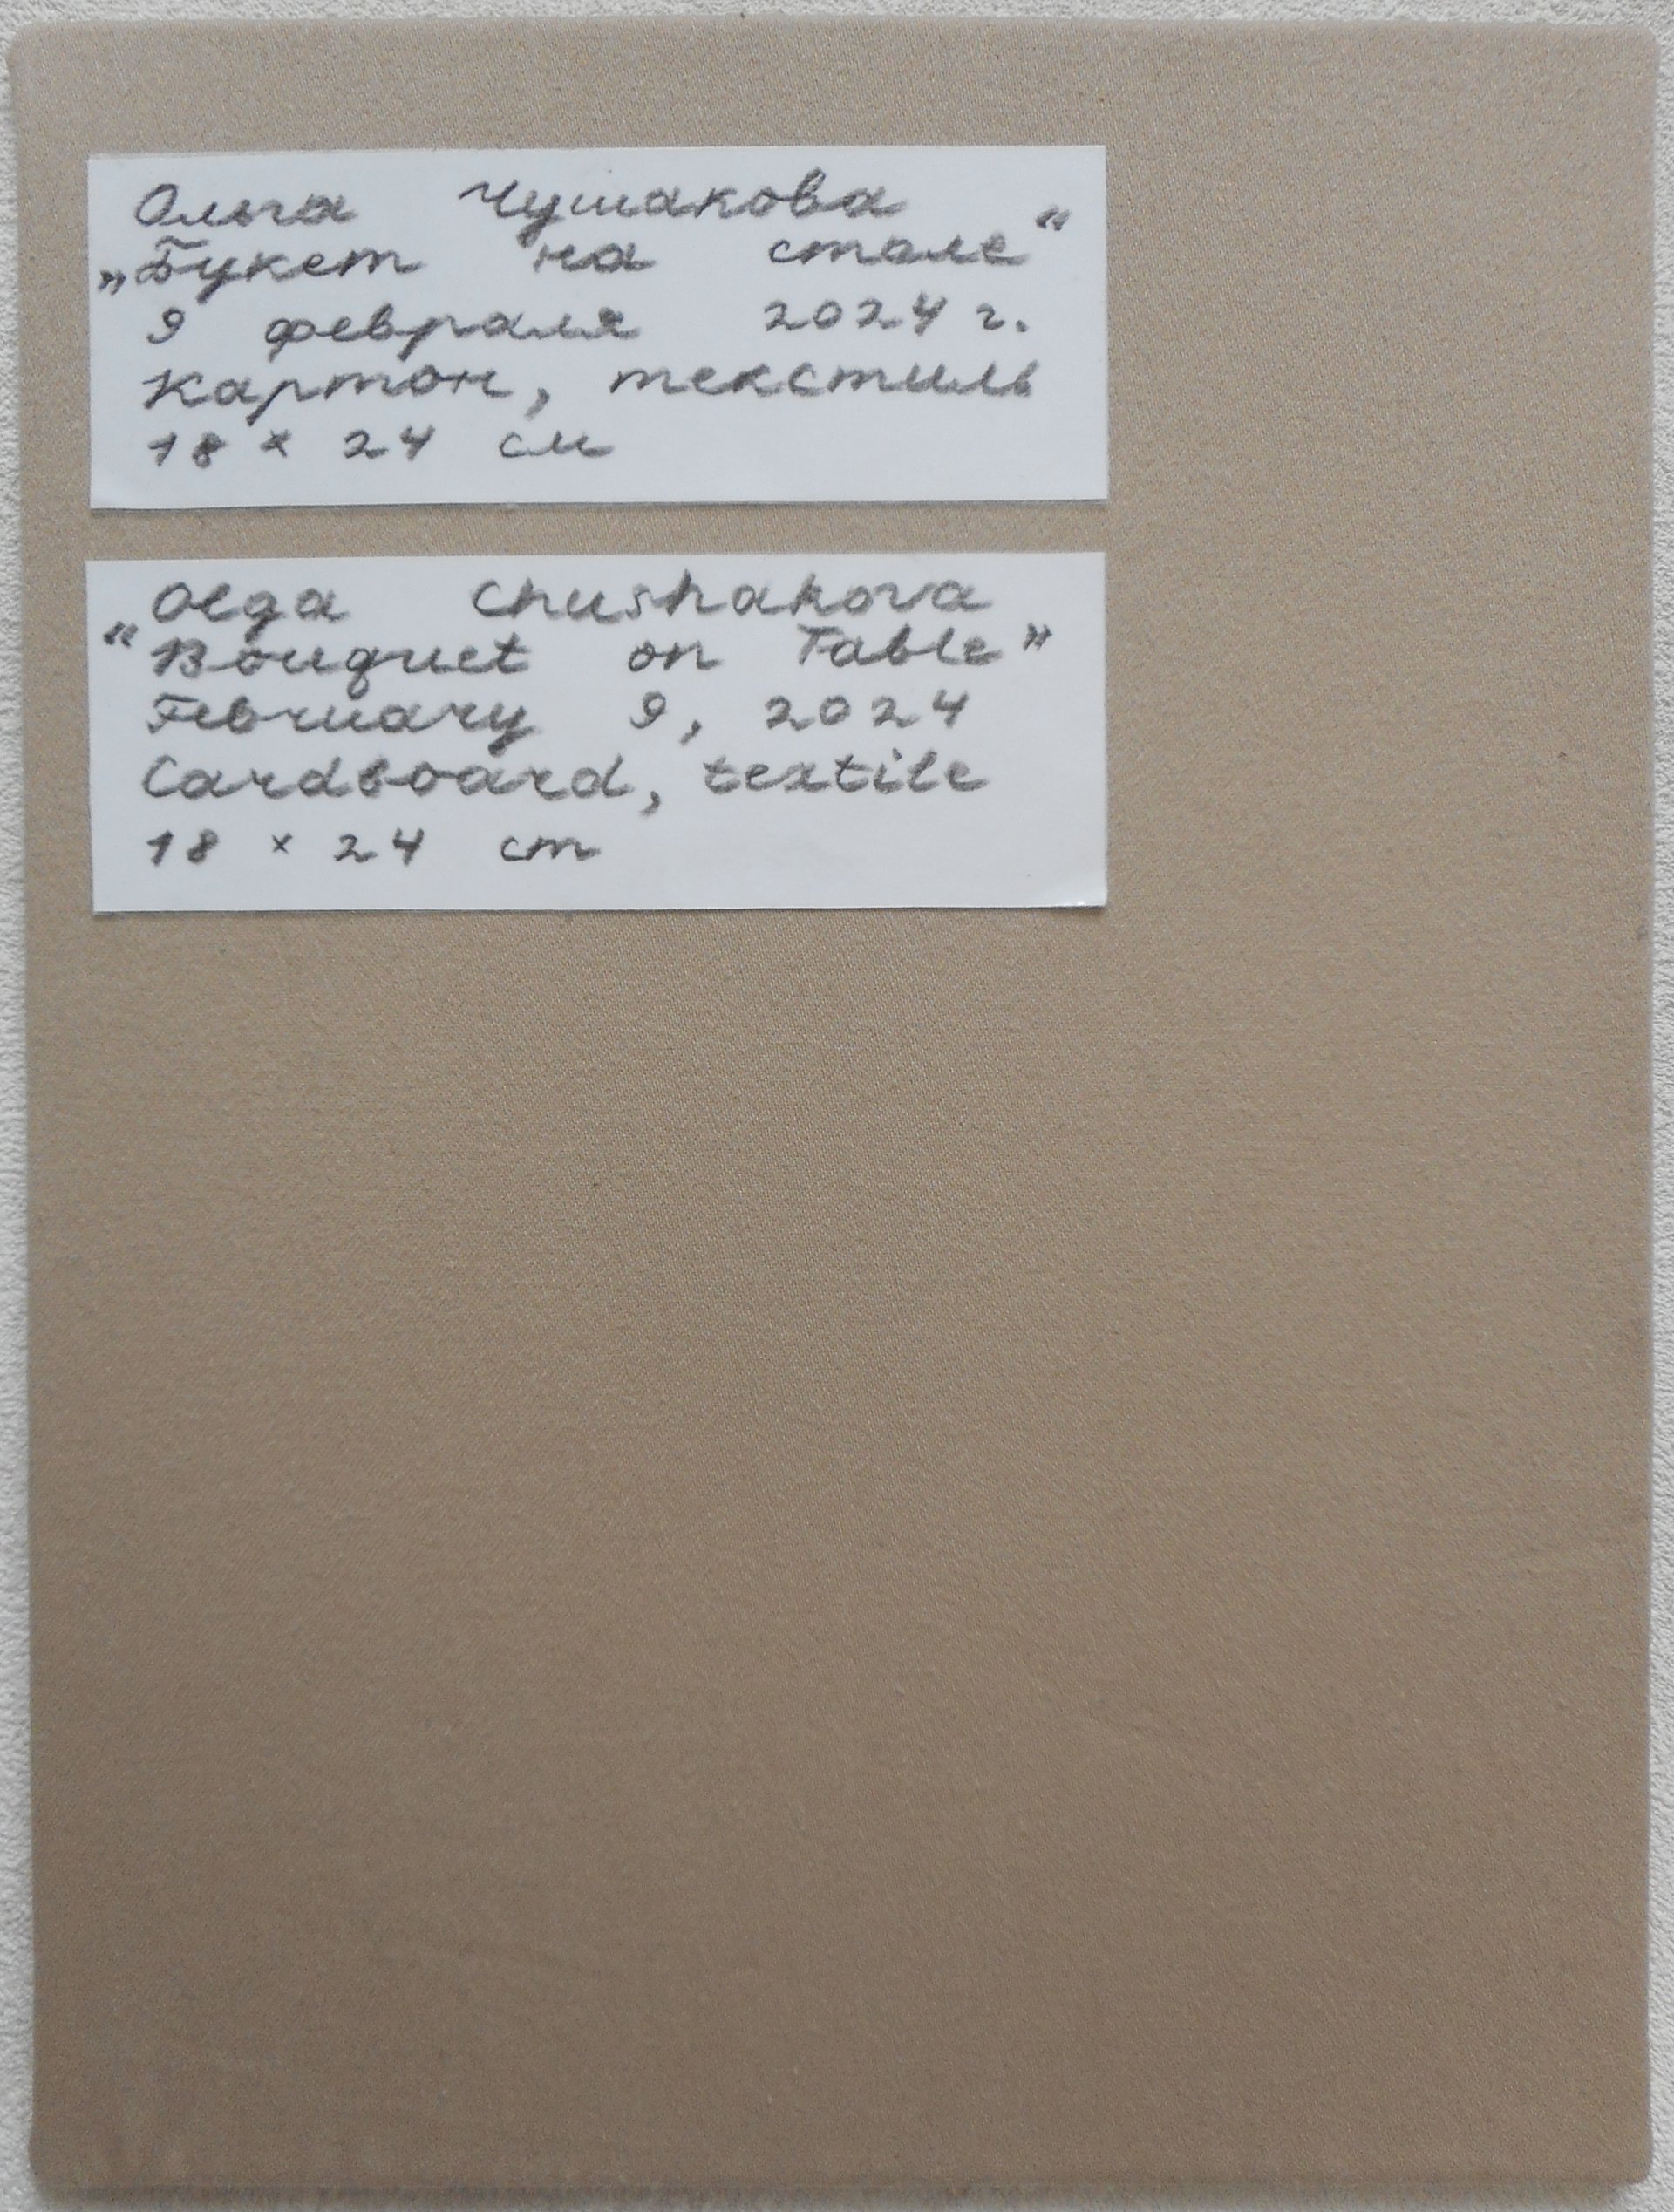 Ольга Чушакова
„Букет на столе“
9 февраля 2024 г.
Картон, текстиль
18 × 24 см
Olga Chushakova
“Bouquet on Table”
February 9, 2024
Cardboard, textile
18 × 24 cm